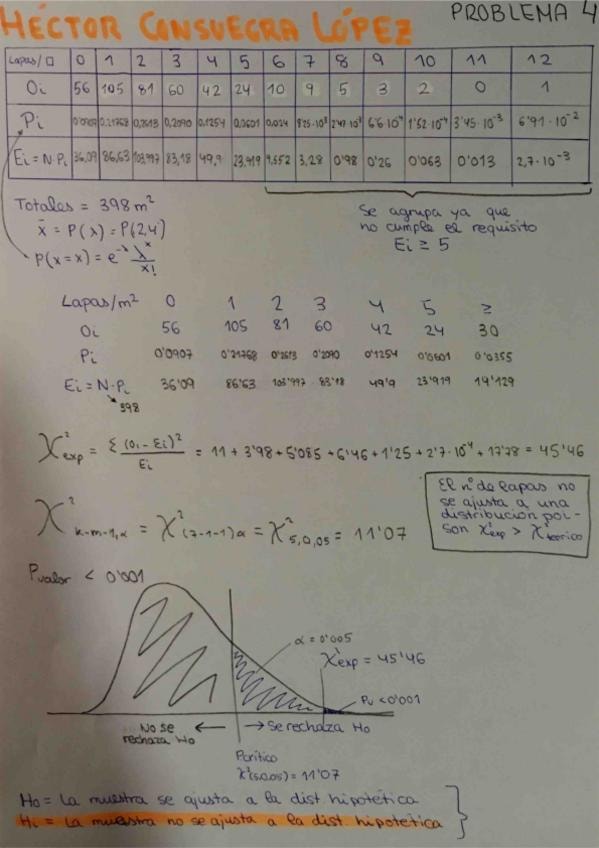 HÉCTOR CONSUEGRA LÓPEZ PROBLEMA 4
Lapas/□ 0 1 2 3 4 5 6 7 8 9 10 11 12
Oi 56 105 81 60 42 24 10 9 5 3 2 0 1
Pi 0'0907 0,21768 0,2613 0,2090 0,1254 0,0601 0,024 8'25·10³ 2'47·10³ 6'6·10⁻⁴ 1'52·10⁻⁴ 3'45·10⁻³ 6'91·10⁻²
Ei = N·Pi 36,09 86,63 103,997 83,18 49,9 23,919 9,552 3,28 0'98 0'26 0'063 0'013 2,7·10⁻³
Totales = 398 m²
x̄ = P(λ) = P(2,4)
P(x=x) = e^-λ λ^x/x!
Se agrupa ya que
no cumple el requisito
Ei ≥ 5
Lapas/m² 0 1 2 3 4 5 ≥
Oi 56 105 81 60 42 24 30
Pi 0'0907 0'21768 0'2613 0'2090 0'1254 0'0601 0'0355
Ei = N·Pi 36'09 86'63 103'997 83'18 49'9 23'919 14'129
398
χ²exp = Σ (Oi - Ei)²/Ei = 11 + 3'98 + 5'085 + 6'46 + 1'25 + 2'7·10⁻⁴ + 17'78 = 45'46
χ²k-m-1,α = χ²(7-1-1)α = χ²5,0,05 = 11'07
El nº de lapas no
se ajusta a una
distribución poi-
son χ²exp > χ²teorico
Pvalor < 0'001
α = 0'005
χ²exp = 45'46
Pv < 0'001
No se ←
rechaza Ho
→ Se rechaza Ho
Pcrítico
χ²(5,0,05) = 11'07
Ho = La muestra se ajusta a la dist. hipotética
H1 = La muestra no se ajusta a la dist. hipotética